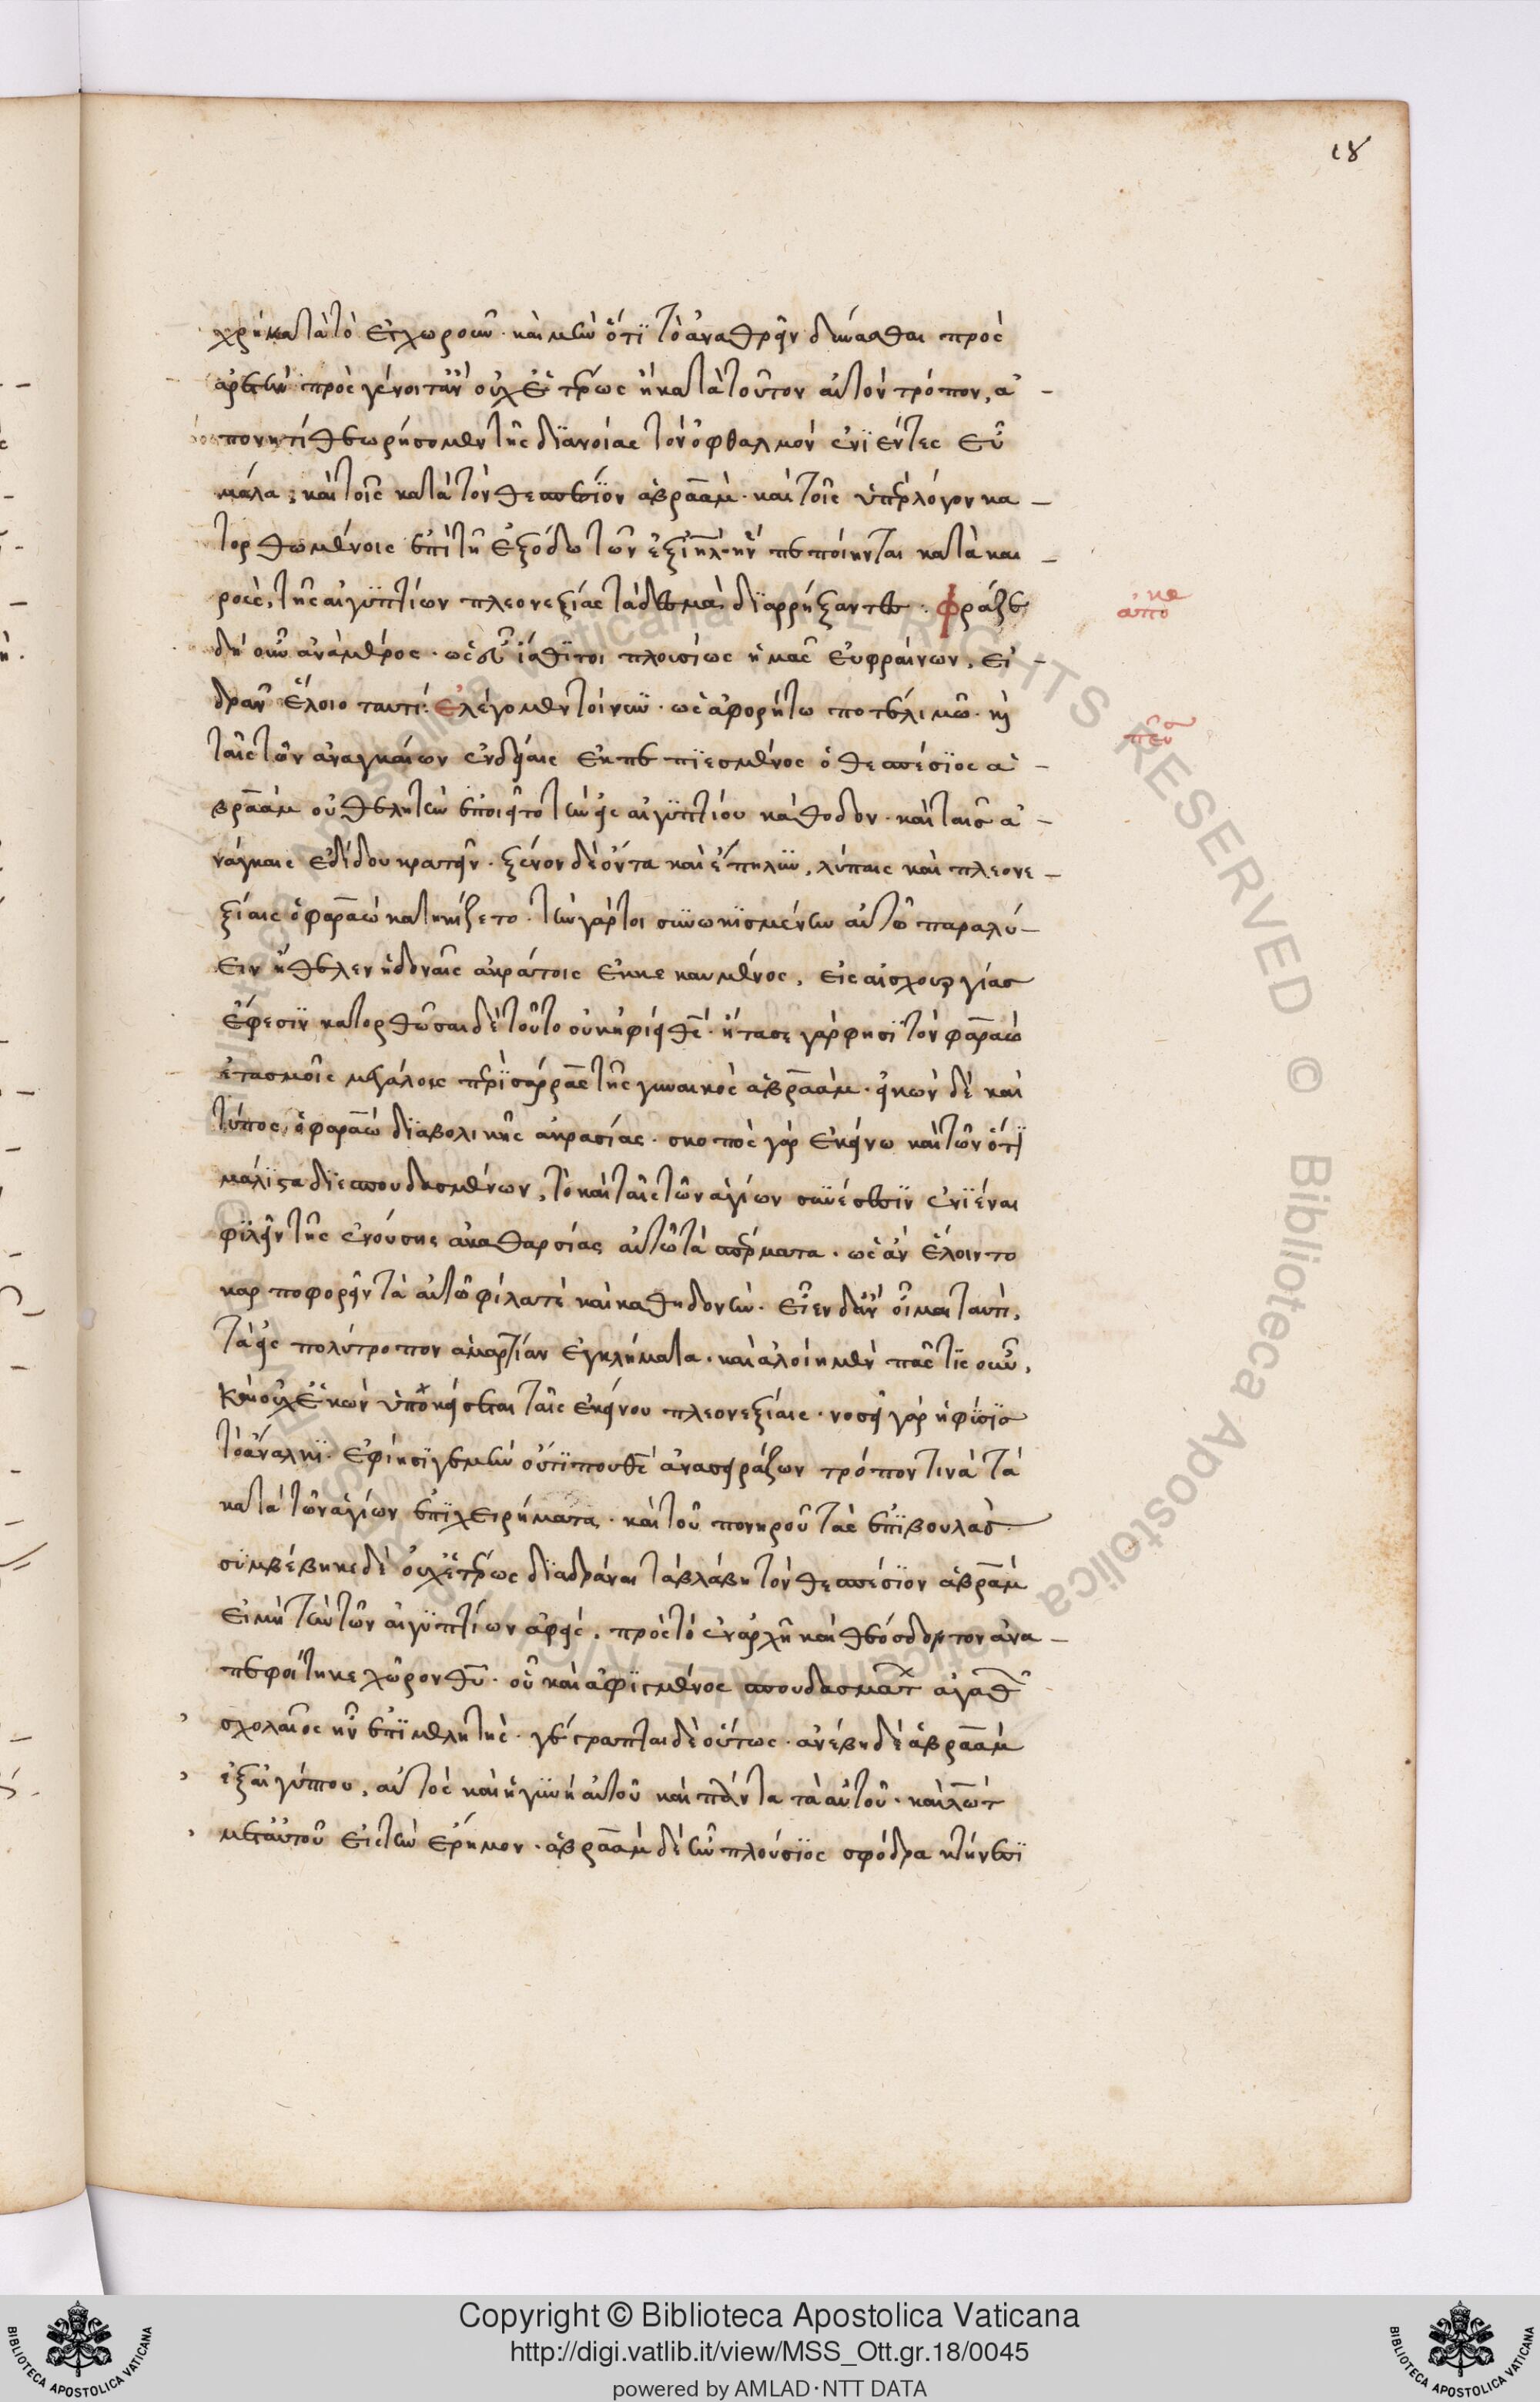 18
χρὴ κατὰ τὸ ἐγχωροῦν· καὶ μὴν ὅτι τὸ ἀναθρεῖν δύνασθαι πρὸς
ἀρετὴν προσγένοιτ' ἂν οὐχ ἑτέρως ἢ κατὰ τοῦτον αὐτὸν τρόπον, ἀ-
πονητὶ θεωρήσομεν τῆς διανοίας τὸν ὀφθαλμὸν ἐνιέντες εὖ
μάλα, καὶ τοῖς κατὰ τὸν θεσπέσιον ἀβραάμ· καὶ τοῖς ὑπὲρ λόγον κα-
τορθωμένοις ἐπὶ τῇ ἐξόδῳ τῶν ἐξ ἰηλ· ἣν πεποίηνται κατὰ και-
ροὺς, τῆς αἰγυπτίων πλεονεξίας τὰ δεσμὰ διαρρήξαντες· φράζε
δὴ οὖν ἀνὰ μέρος· ὡς εὖ ἴσθι τοι πλουσίως ἡμᾶς εὐφραίνων, εἰ
δρᾶν ἕλοιο ταυτί· ἐλέγομεν τοίνυν· ὡς ἀφορήτῳ ποτὲ λιμῷ· κὶ
ταῖς τῶν ἀναγκαίων ἐνδείαις ἐκπεπιεσμένος ὁ θεσπέσιος ἀ-
βραάμ οὐ θελητὴν ἐποιεῖτο τὴν εἰς αἰγύπτου κάθοδον· καὶ ταῖς ἀ-
νάγκαις ἐδίδου κρατεῖν· ξένον δὲ ὄντα καὶ ἔπηλυν, λύπαις καὶ πλεονε-
ξίαις ὁ φαραὼ κατῃκίζετο· τὴν γάρ τοι συνῳκισμένην αὐτῷ παραλύ-
ειν ἤθελεν ἡδοναῖς ἀκράτοις ἐκκεκαυμένος, εἰς αἰσχουργίας
ἔφεσιν κατορθῶσαι δὲ τοῦτο οὐκ ἠφίει θς· ἤτασε γάρ φησι τὸν φαραὼ
ἐτασμοῖς μεγάλοις περὶ σάρρας τῆς γυναικὸς ἀβραάμ· εἰκὼν δὲ καὶ
τύπος, ὁ φαραὼ διαβολικῆς ἀκρασίας· σκοπὸς γὰρ ἐκείνῳ καὶ τῶν ὅτι
μάλιστα διεσπουδασμένων, τὸ καὶ ταῖς τῶν ἁγίων συνέσεσιν ἐνιέναι
φιλεῖν τῆς ἐνούσης ἀκαθαρσίας αὐτῷ τὰ σπέρματα· ὡς ἂν ἕλοιντο
καρποφορεῖν τὰ αὐτῷ φίλα τὲ καὶ καθ' ἡδονὴν· εἶεν δ' ἂν οἶμαι ταυτὶ,
τὰ εἰς πολύτροπον ἁμαρτίαν ἐγκλήματα· καὶ ἁλοίη μὲν πᾶς τις οὖν,
κἂν οὐχ ἑκὼν ὑποκεῖσθαι ταῖς ἐκείνου πλεονεξίαις· νοσεῖ γὰρ ἡ φύσις
τὸ ἄναλκι· ἐφίησί γε μὴν οὔτι που θς ἀνασειράζων τρόπον τινὰ τὰ
κατὰ τῶν ἁγίων ἐπιχειρήματα· καὶ τοῦ πονηροῦ τὰς ἐπιβουλὰς·
συμβέβηκε δὲ οὐχ ἑτέρως διαδρᾶναι τὰ βλάβη τὸν θεσπέσιον ἀβραάμ
εἰ μὴ τὴν τῶν αἰγυπτίων ἀφεὶς, πρὸς τὸ ἐν ἀρχῇ καὶ θεόσδοτον ἀνα-
πεφοίτηκε χῶρον θυ· οὗ καὶ ἀφιγμένος σπουδασμάτων ἀγαθῶν
σχολαῖος ἦν ἐπιμελητής· γέγραπται δὲ οὕτως· ἀνέβη δὲ ἀβραάμ
ἐξ αἰγύπτου, αὐτὸς καὶ ἡ γυνὴ αὐτοῦ καὶ πάντα τὰ αὐτοῦ· καὶ λὼτ
μετ' αὐτοῦ εἰς τὴν ἔρημον· ἀβραὰμ δὲ ἦν πλούσιος σφόδρα κτήνεσι
Copyright © Biblioteca Apostolica Vaticana
http://digi.vatlib.it/view/MSS_Ott.gr.18/0045
powered by AMLAD·NTT DATA